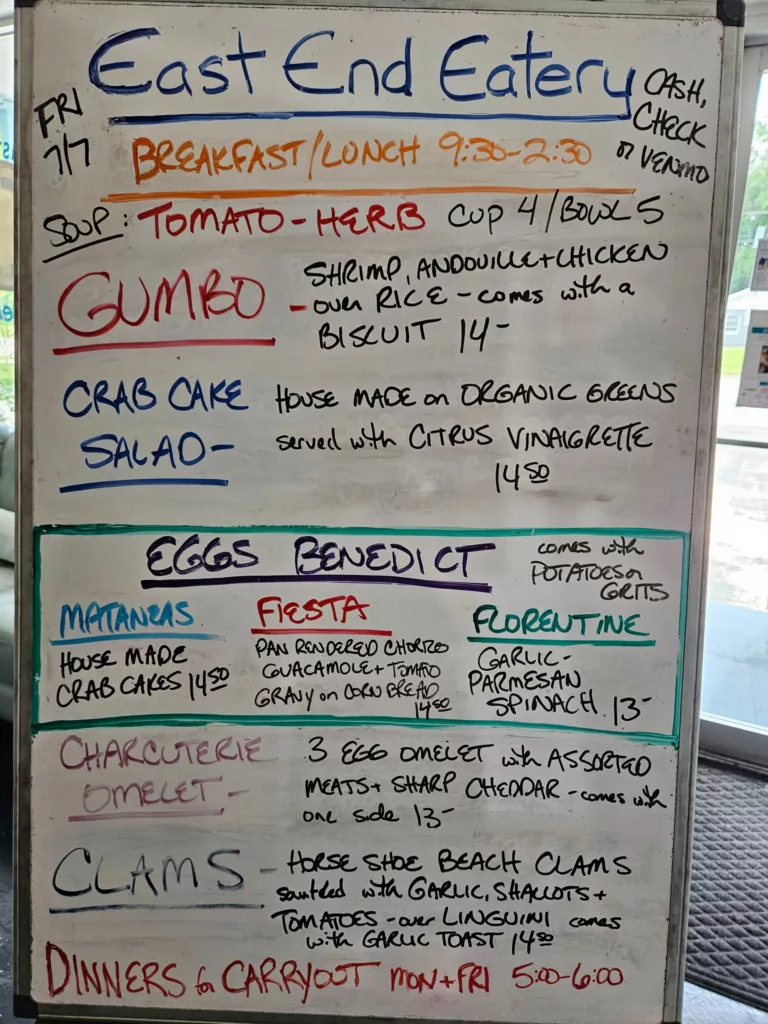 East End Eatery
FRI
7/7
CASH,
CHECK
or VENMO
BREAKFAST/LUNCH 9:30-2:30
SOUP: TOMATO-HERB CUP 4/BOWL 5
GUMBO - SHRIMP, ANDOUILLE + CHICKEN
over RICE - comes with a
BISCUIT 14-
CRAB CAKE HOUSE MADE on ORGANIC GREENS
SALAD- served with CITRUS VINAIGRETTE
14 50
EGGS BENEDICT
comes with
POTATOES or
GRITS
MATANZAS
HOUSE MADE
CRAB CAKES 14 50
FIESTA
PAN RENDERED CHORIZO
GUACAMOLE + TOMATO
GRAVY on CORN BREAD
14 50
FLORENTINE
GARLIC-
PARMESAN
SPINACH 13-
CHARCUTERIE 3 EGG OMELET with ASSORTED
OMELET - MEATS + SHARP CHEDDAR - comes with
one side 13-
CLAMS - HORSE SHOE BEACH CLAMS
sautéed with GARLIC, SHALLOTS +
TOMATOES - over LINGUINI comes
with GARLIC TOAST 14 50
DINNERS for CARRYOUT MON + FRI 5:00-6:00